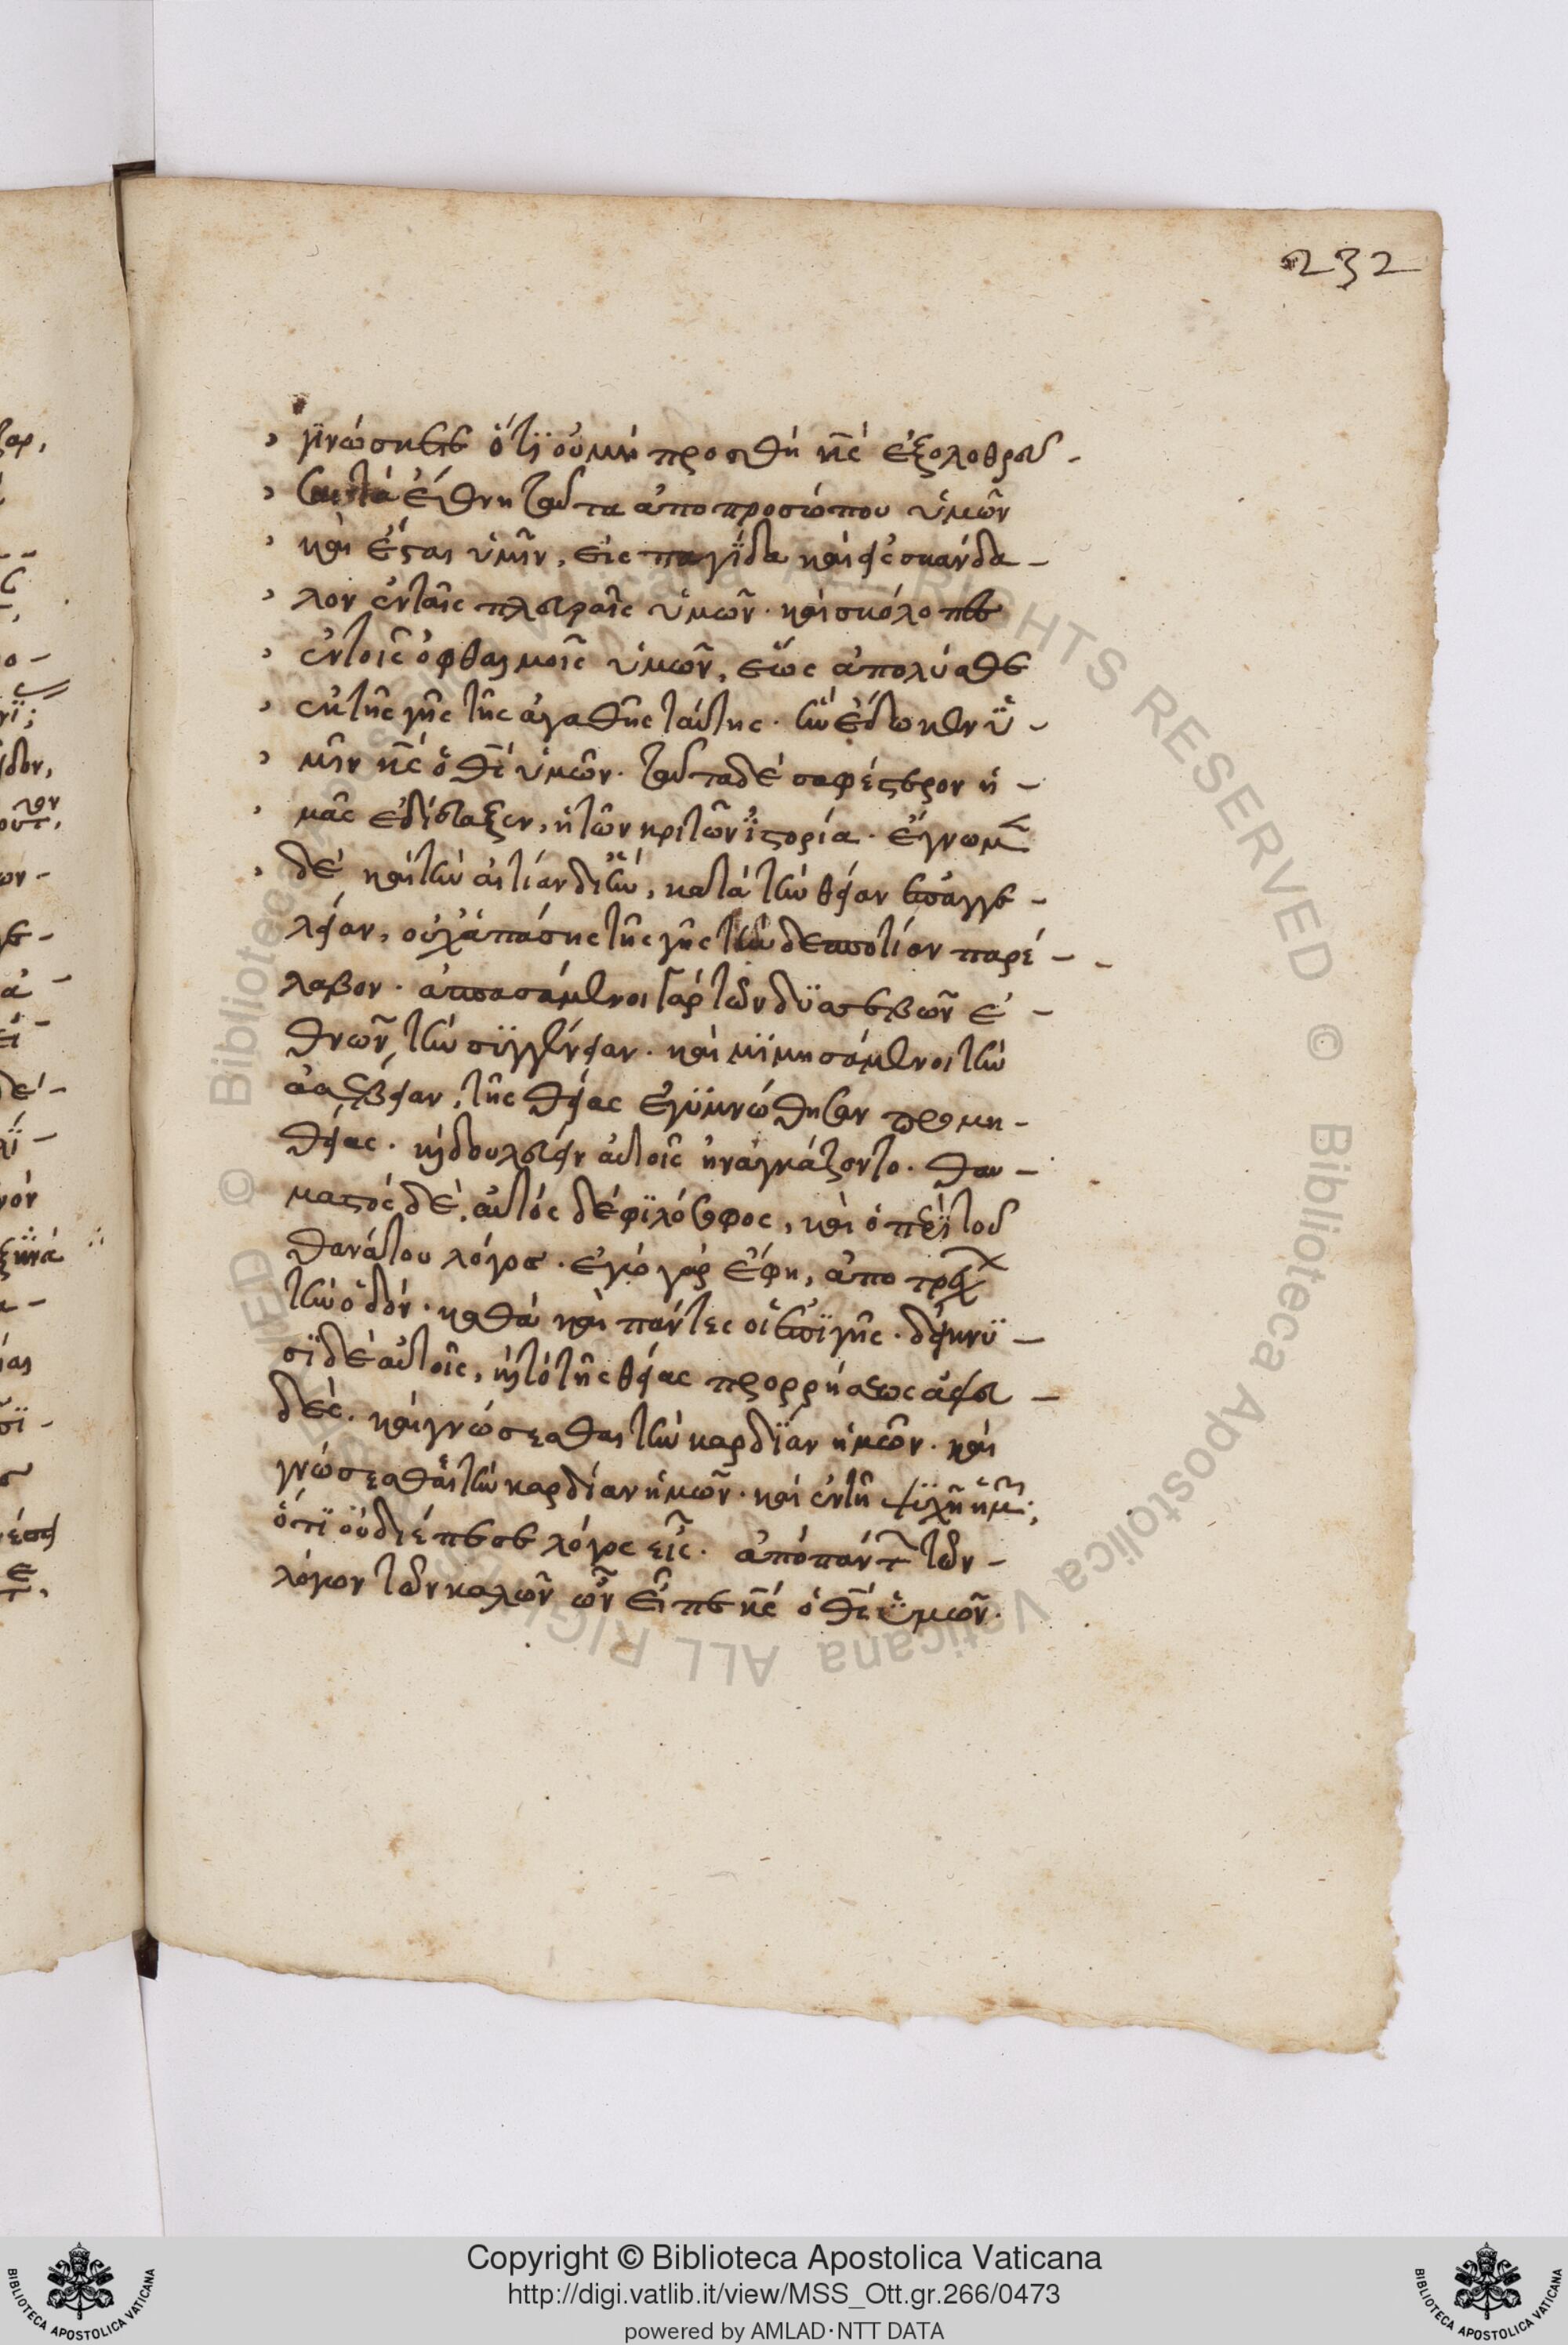 232
γϊνώσκετε ὅτϊ οὐ μὴ προσθῆ κ̅ς̅ ἐξολοθρεῦ-
σαι τὰ ἔθνη ταῦτα ἀπο προσώπου ὑμῶν
καὶ ἔσται ὑμῖν, εἰς παγίδα καὶ εἰς σκάνδα-
λον ἐν ταῖς πλευραῖς ὑμῶν. καὶ σκόλοπες
ἐν τοῖς ὀφθαλμοῖς ὑμῶν, ἕως ἀπολύσθε
ἐκ τῆς γῆς τῆς ἀγαθῆς ταύτης. ἣν ἔδωκεν ὑ-
μῖν κ̅ς̅ ὁ θ̅ς̅ ὑμῶν. ταῦτα δὲ σαφέστερον ἡ-
μᾶς ἐδίδαξεν, ἡ τῶν κριτῶν ἱστορία. ἔγνωμεν
δὲ καὶ τὴν αἰτίαν δι' ἣν, κατὰ τὴν θείαν ἐπαγγε-
λείαν, οὐχ ἁπάσης τῆς γῆς τὴν δεσποτίαν παρέ-
λαβον. ἀσπασάμενοι γὰρ τῶν δυσσεβῶν ἐ-
θνῶν τὴν συγγένειαν. καὶ μϊμησάμενοι τὴν
ἀσέβειαν, τῆς θείας ἐγυμνώθησαν προμη-
θείας. καὶ δουλεύειν αὐτοῖς ἠναγκάζοντο. θαυ-
μαστὸς δὲ αὐτὸς δὲ φϊλόσοφος, καὶ ὁ περὶ τοῦ
θανάτου λόγος. ἐγὼ γὰρ ἔφη, ἀποτρέχω
τὴν ὁδόν. καθὰ καὶ πάντες οἱ ἐπὶ γῆς. δείκνυ-
σϊ δὲ αὐτοῖς, καὶ τὸ τῆς θείας προρρήσεως ἀψευ-
δές. καὶ γνώσεσθαι τὴν καρδίαν ἡμῶν. καὶ
γνώσεσθαι τὴν καρδίαν ἡμῶν. καὶ ἐν τῆ ψυχῆ ἡμῶν;
ὅτϊ οὐ διέπεσε λόγος εἷς. ἀπὸ πάντων τῶν-
λόγων τῶν καλῶν ὧν εἶπε κ̅ς̅ ὁ θ̅ς̅ ὑμῶν.
Copyright © Biblioteca Apostolica Vaticana
http://digi.vatlib.it/view/MSS_Ott.gr.266/0473
powered by AMLAD·NTT DATA